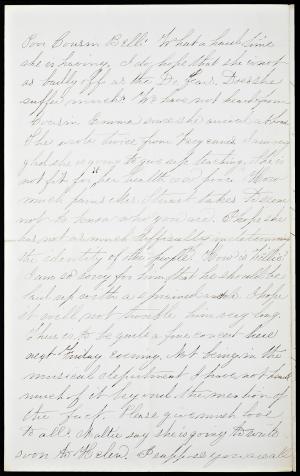 Poor Cousin Bell! What a hard time
she is having. I do hope that she is not
as badly off as the Dr. fears. Does she
suffer much? We have not heard from
Cousin Emma since she arrived at home
She wrote twice from I am very
glad she is going to give up teaching. She is
not fit for it, her health is so poor. How
much pains Mrs. Stuart takes to seem
not to know who you are. I hope she
has not as much difficulty in determining
the identity of other people. How is Willie
I am so sorry for him, that he should be
laid up with a sprained ankle. I hope
it will not trouble him very long.
There is to be quite a fine concert here
next Friday evening. Not being in the
musical department I have not heard
much of it beyond the mention of
the fact. Please give much love
to all. Mattie says she is going to write
soon to Helen. I suppose you are all